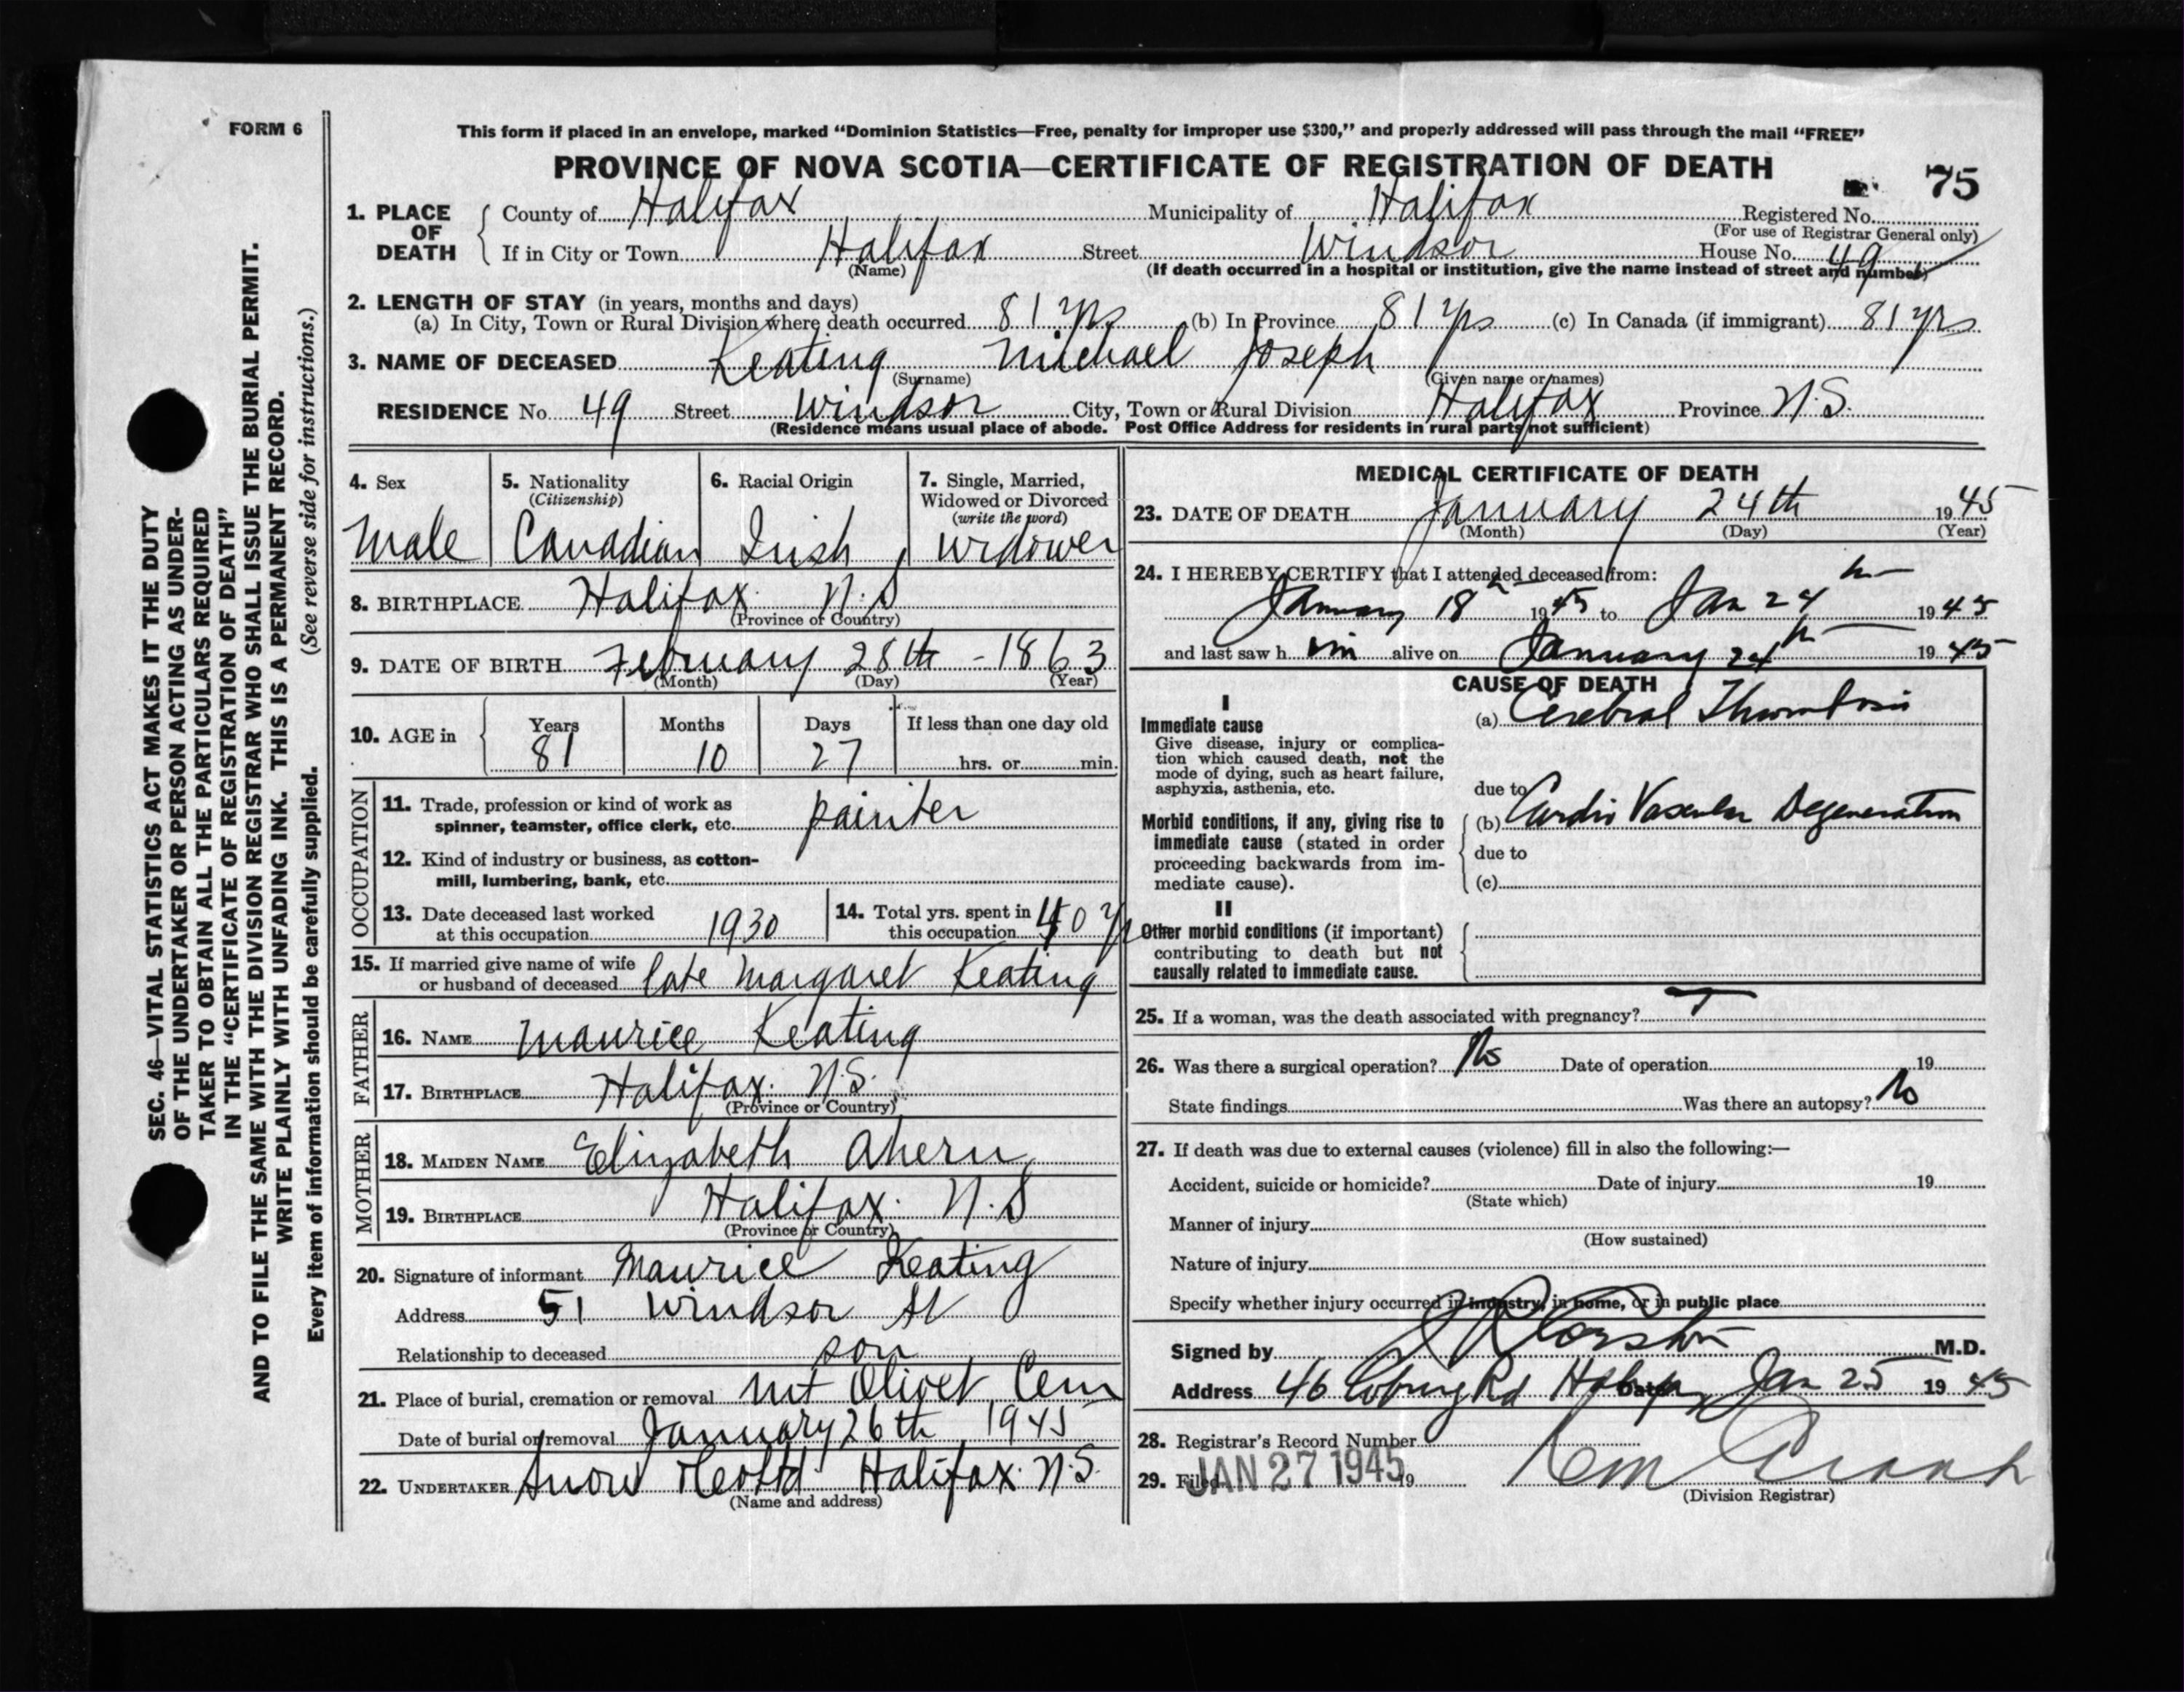 FORM 6
SEC. 46—VITAL STATISTICS ACT MAKES IT THE DUTY
OF THE UNDERTAKER OR PERSON ACTING AS UNDER-
TAKER TO OBTAIN ALL THE PARTICULARS REQUIRED
IN THE "CERTIFICATE OF REGISTRATION OF DEATH"
AND TO FILE THE SAME WITH THE DIVISION REGISTRAR WHO SHALL ISSUE THE BURIAL PERMIT.
WRITE PLAINLY WITH UNFADING INK. THIS IS A PERMANENT RECORD.
Every item of information should be carefully supplied. (See reverse side for instructions.)
This form if placed in an envelope, marked "Dominion Statistics—Free, penalty for improper use $300," and properly addressed will pass through the mail "FREE"
PROVINCE OF NOVA SCOTIA—CERTIFICATE OF REGISTRATION OF DEATH
75
1. PLACE OF DEATH
County of Halifax Municipality of Halifax Registered No.
(For use of Registrar General only)
If in City or Town Halifax Street Windsor House No. 49
(Name) (If death occurred in a hospital or institution, give the name instead of street and number)
2. LENGTH OF STAY (in years, months and days)
(a) In City, Town or Rural Division where death occurred 81 yrs (b) In Province 81 yrs (c) In Canada (if immigrant) 81 yrs
3. NAME OF DECEASED Keating Michael Joseph
(Surname) (Given name or names)
RESIDENCE No. 49 Street Windsor City, Town or Rural Division Halifax Province N.S.
(Residence means usual place of abode. Post Office Address for residents in rural parts not sufficient)
4. Sex
Male
5. Nationality
(Citizenship)
Canadian
6. Racial Origin
Irish
7. Single, Married,
Widowed or Divorced
(write the word)
Widower
8. BIRTHPLACE Halifax. N.S
(Province or Country)
9. DATE OF BIRTH February 28th - 1863
(Month) (Day) (Year)
10. AGE in
Years Months Days If less than one day old
81 10 27 hrs. or min.
OCCUPATION
11. Trade, profession or kind of work as
spinner, teamster, office clerk, etc. painter
12. Kind of industry or business, as cotton-
mill, lumbering, bank, etc.
13. Date deceased last worked
at this occupation 1930
14. Total yrs. spent in
this occupation 40 yr
15. If married give name of wife
or husband of deceased late Margaret Keating
FATHER
16. NAME Maurice Keating
17. BIRTHPLACE Halifax. N.S.
(Province or Country)
MOTHER
18. MAIDEN NAME Elizabeth Ahern
19. BIRTHPLACE Halifax. N.S
(Province or Country)
20. Signature of informant Maurice Keating
Address 51 Windsor St
Relationship to deceased son
21. Place of burial, cremation or removal Mt Olivet Cem
Date of burial or removal January 26th 1945
22. UNDERTAKER Snow Halifax. N.S.
(Name and address)
MEDICAL CERTIFICATE OF DEATH
23. DATE OF DEATH January 24th 1945
(Month) (Day) (Year)
24. I HEREBY CERTIFY that I attended deceased from:
January 18th 1945 to Jan 24th 1945
and last saw him alive on January 24th 1945
CAUSE OF DEATH
I
Immediate cause
Give disease, injury or complica-
tion which caused death, not the
mode of dying, such as heart failure,
asphyxia, asthenia, etc.
(a) Cerebral Thrombosis
due to
Morbid conditions, if any, giving rise to
immediate cause (stated in order
proceeding backwards from im-
mediate cause).
(b) Cardio Vascular Degeneration
due to
(c)
II
Other morbid conditions (if important)
contributing to death but not
causally related to immediate cause.
25. If a woman, was the death associated with pregnancy?
26. Was there a surgical operation? No Date of operation 19
State findings Was there an autopsy? No
27. If death was due to external causes (violence) fill in also the following:—
Accident, suicide or homicide? Date of injury 19
(State which)
Manner of injury
(How sustained)
Nature of injury
Specify whether injury occurred in industry, in home, or in public place
Signed by M.D.
Address 46 Coburg Rd Date Jan 25 1945
28. Registrar's Record Number
29. Filed JAN 27 1945 19
(Division Registrar)